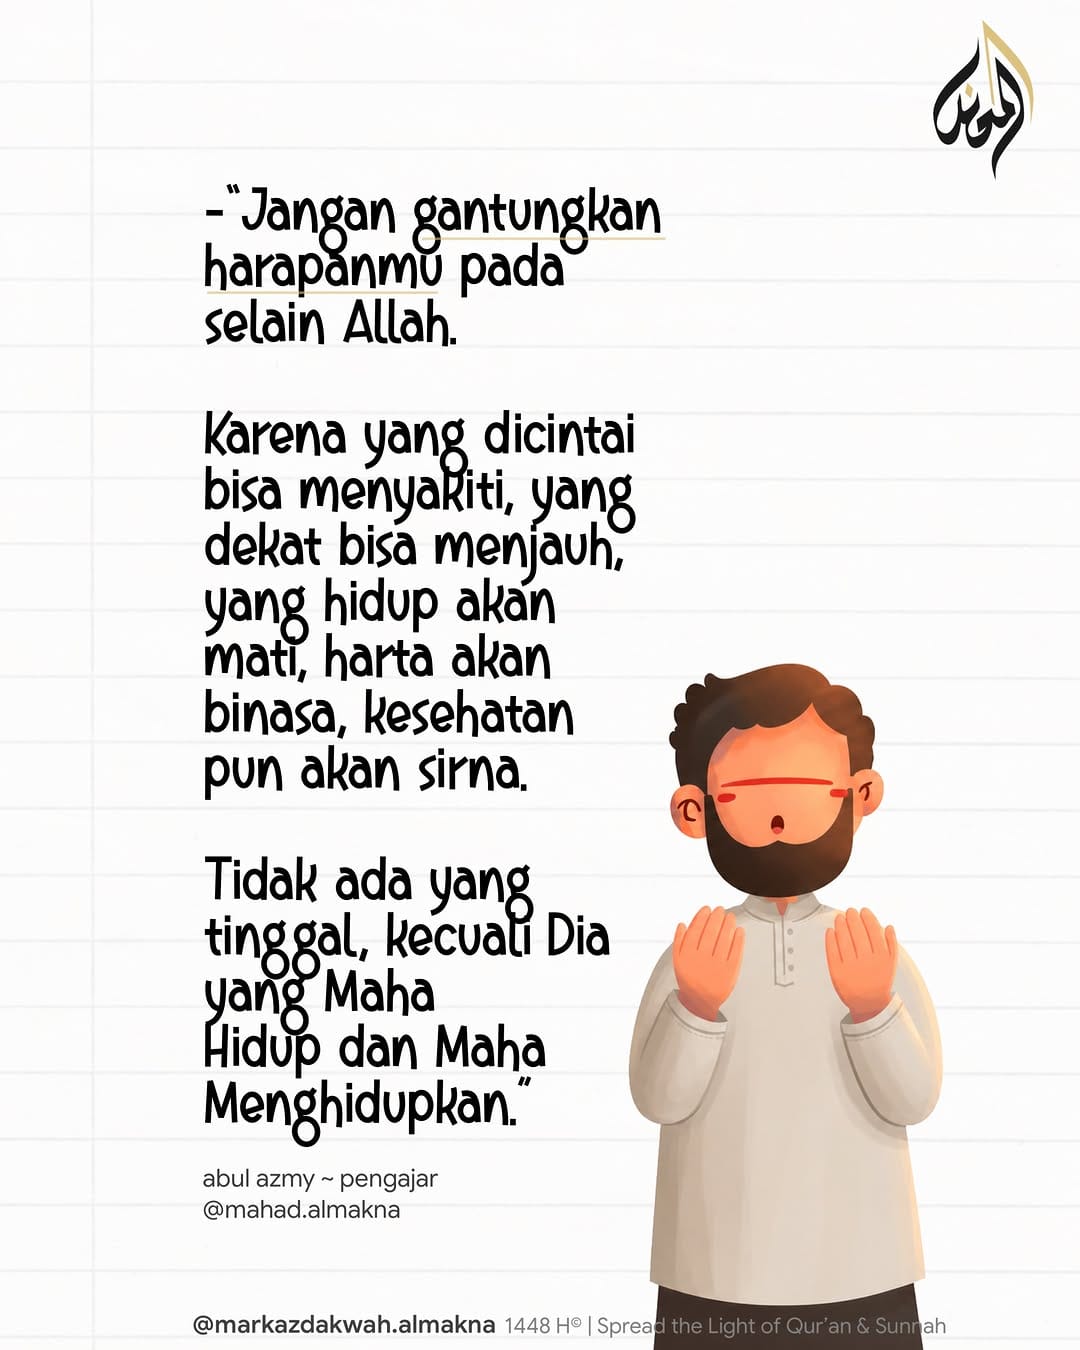 -"Jangan gantungkan
harapanmu pada
selain Allah.
Karena yang dicintai
bisa menyakiti, yang
dekat bisa menjauh,
yang hidup akan
mati, harta akan
binasa, kesehatan
pun akan sirna.
Tidak ada yang
tinggal, kecuali Dia
yang Maha
Hidup dan Maha
Menghidupkan."
abul azmy ~ pengajar
@mahad.almakna
@markazdakwah.almakna 1448 H© | Spread the Light of Qur'an & Sunnah